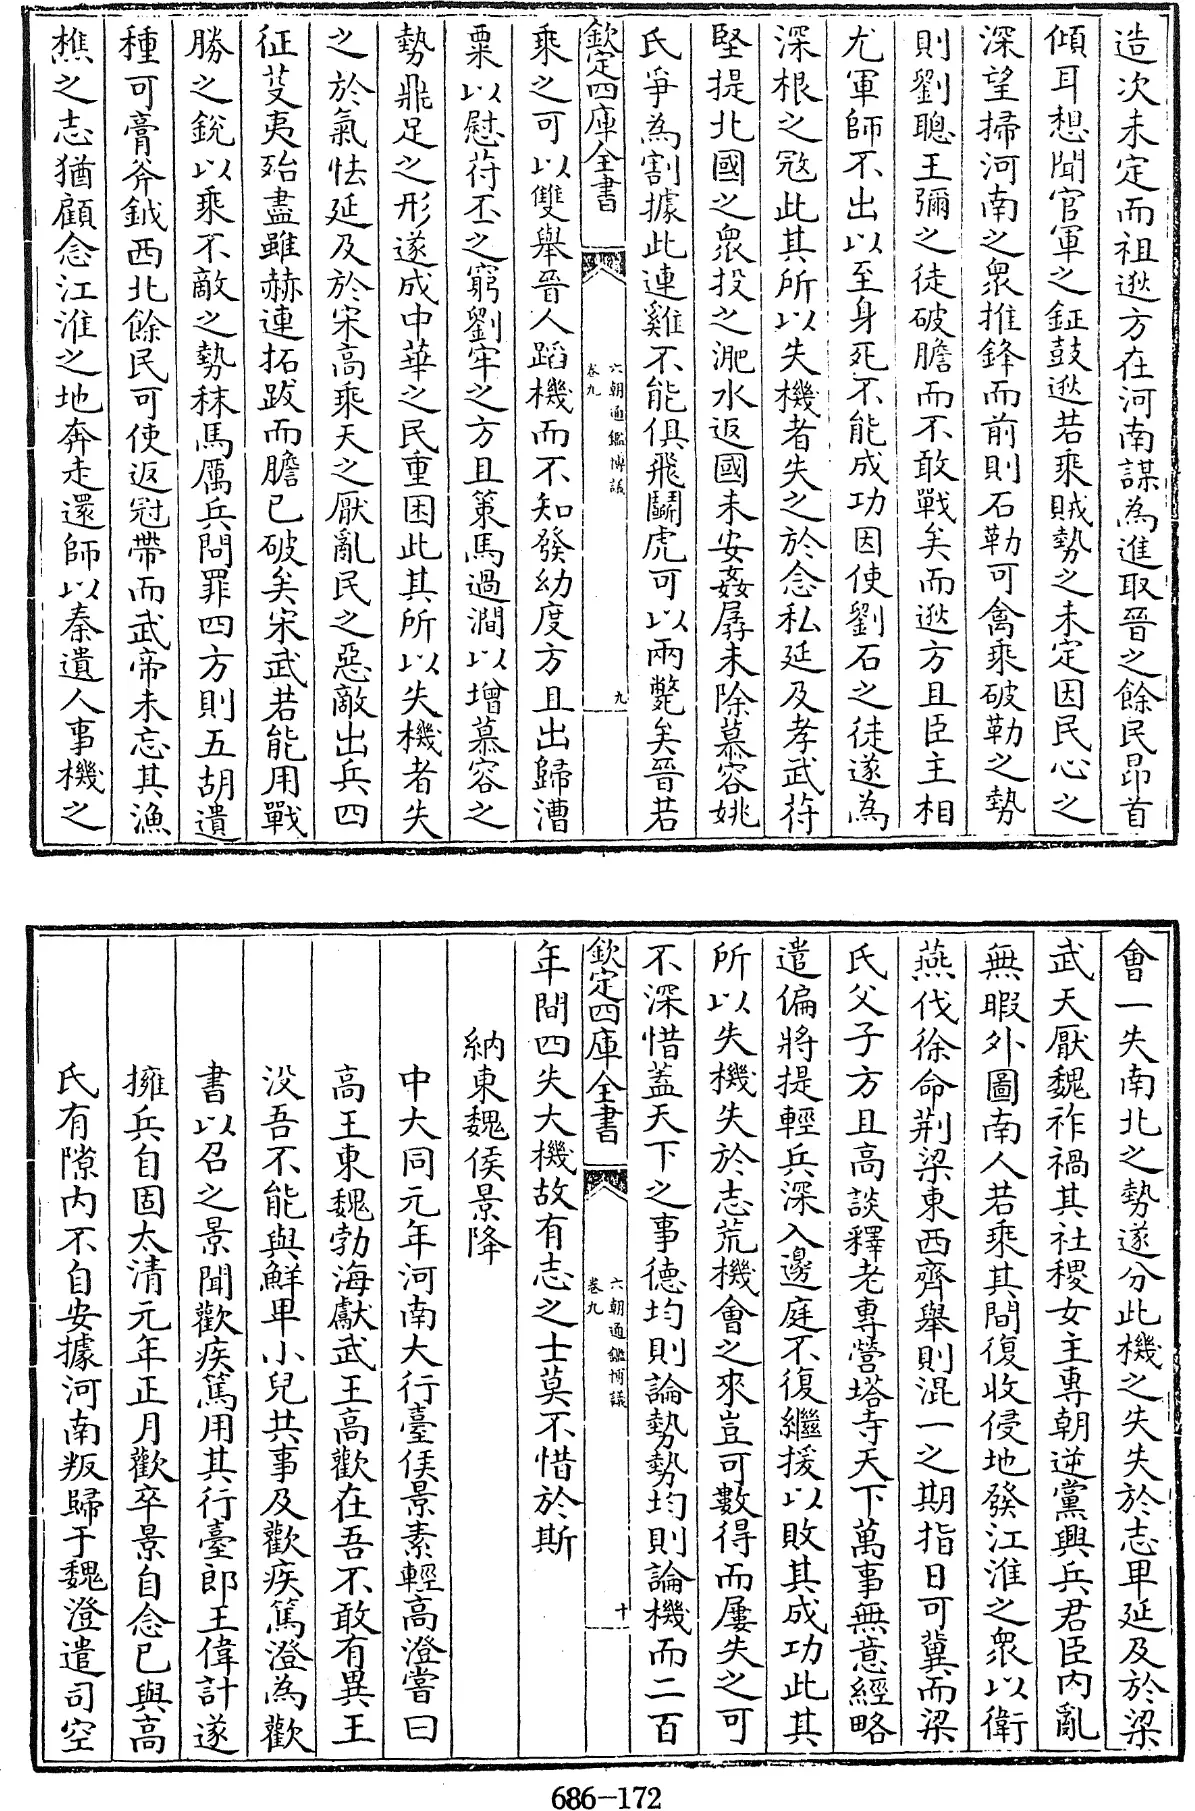 造次未定而祖逖方在河南謀為進取晉之餘民昂首
傾耳想聞官軍之鉦鼓逖若乘賊勢之未定因民心之
深望掃河南之衆推鋒而前則石勒可禽乘破勒之勢
則劉聰王彌之徒破膽而不敢戰矣而逖方且臣主相
尤軍師不出以至身死不能成功因使劉石之徒遂為
深根之冦此其所以失機者失之於念私延及孝武苻
堅提北國之衆投之淝水返國未安姦孱未除慕容姚
氏爭為割據此連雞不能俱飛鬬虎可以兩斃矣晉若
欽定四庫全書
六朝通鑑博議
卷九
九
乘之可以雙舉晉人蹈機而不知發幼度方且出歸漕
粟以慰苻丕之窮劉牢之方且策馬過澗以增慕容之
勢鼎足之形遂成中華之民重困此其所以失機者失
之於氣怯延及於宋高乘天之厭亂民之惡敵出兵四
征芟夷殆盡雖赫連拓跋而膽已破矣宋武若能用戰
勝之銳以乘不敵之勢秣馬厲兵問罪四方則五胡遺
種可膏斧鉞西北餘民可使返冠帶而武帝未忘其漁
樵之志猶顧念江淮之地奔走還師以秦遺人事機之
會一失南北之勢遂分此機之失失於志卑延及於梁
武天厭魏祚禍其社稷女主專朝逆黨興兵君臣内亂
無暇外圖南人若乘其間復收侵地發江淮之衆以衛
燕伐徐命荆梁東西齊舉則混一之期指日可冀而梁
氏父子方且高談釋老專營塔寺天下萬事無意經略
遣偏將提輕兵深入邊庭不復繼援以敗其成功此其
所以失機失於志荒機會之來豈可數得而屢失之可
不深惜蓋天下之事德均則論勢勢均則論機而二百
欽定四庫全書
六朝通鑑博議
卷九
十
年間四失大機故有志之士莫不惜於斯
納東魏侯景降
中大同元年河南大行臺侯景素輕高澄嘗曰
高王東魏勃海獻武王高歡在吾不敢有異王
没吾不能與鮮卑小兒共事及歡疾篤澄為歡
書以召之景聞歡疾篤用其行臺郎王偉計遂
擁兵自固太清元年正月歡卒景自念已與高
氏有隙内不自安據河南叛歸于魏澄遣司空
686-172